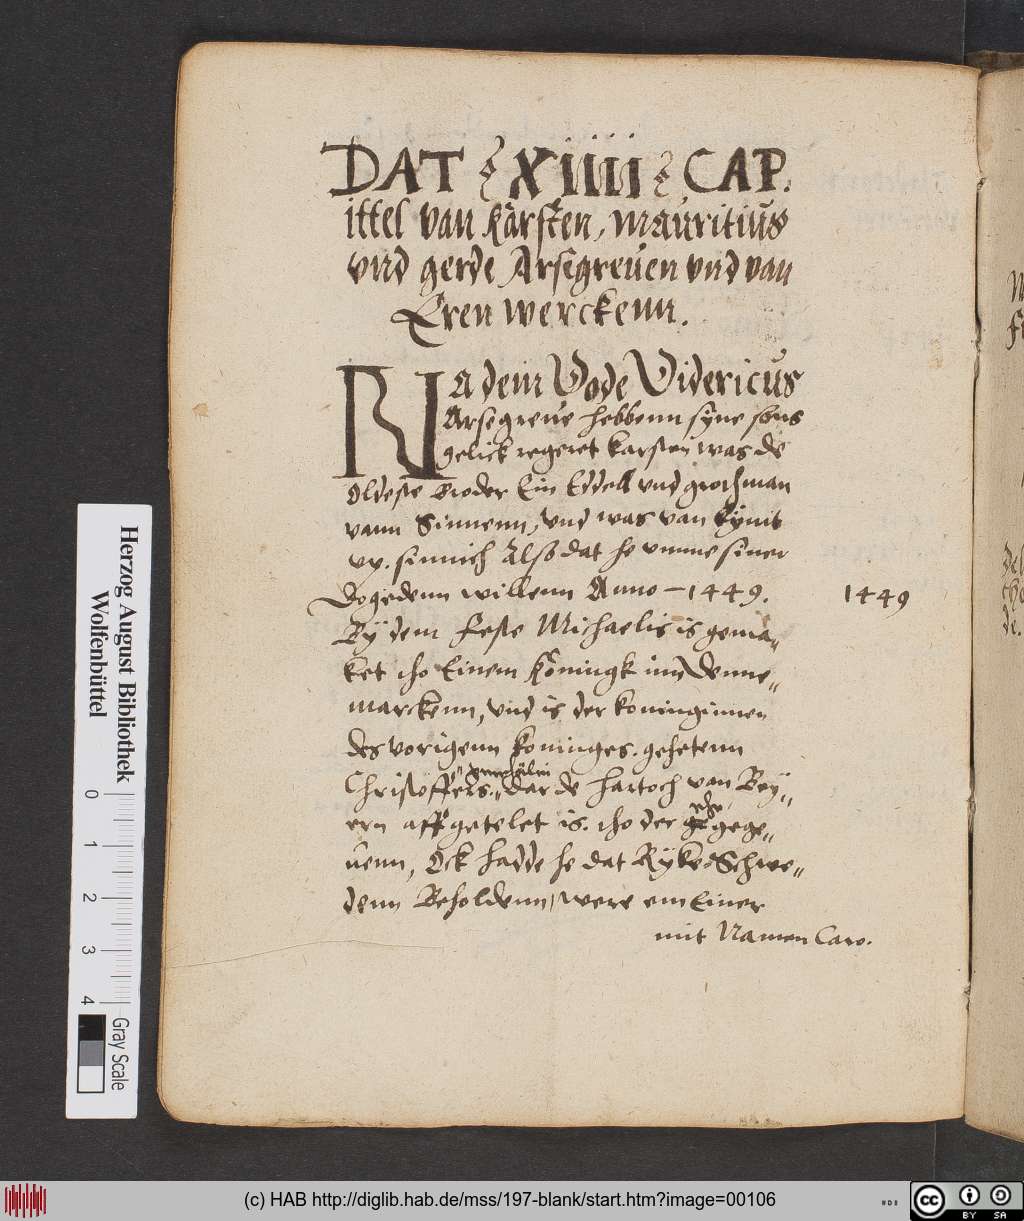 DAT XIIII CAP.
ittel van karsten, Mauritius
vnd gerde Arsegreuen vnd van
Eren werckenn.
NA dem Dode Didericus
Arsegreue hebbenn syne sons
gelick regeret karsten was de
Oldeste Broder Ein Eddell vnd groszman
vann Sinnenn, vnd was van
sinnich Also dat he vmme siner
dogedenn willenn Anno – 1449.
1449
By dem Feste Michaelis is gema„
ket tho Einem Köningk inn Denne„
marckenn, vnd is der koninginnen
des vorigenn koninges. gehetenn
Christoffers. dar de hartoch van Bey„
ern aff getelet is. tho der ehe gege„
uenn, Ock hadde he dat Ryke Schwe„
denn Beholdenn, were em Einer
mit Namen Caro.
Herzog August Bibliothek
Wolfenbüttel
0 1 2 3 4
Gray Scale
(c) HAB http://diglib.hab.de/mss/197-blank/start.htm?image=00106
CC BY SA